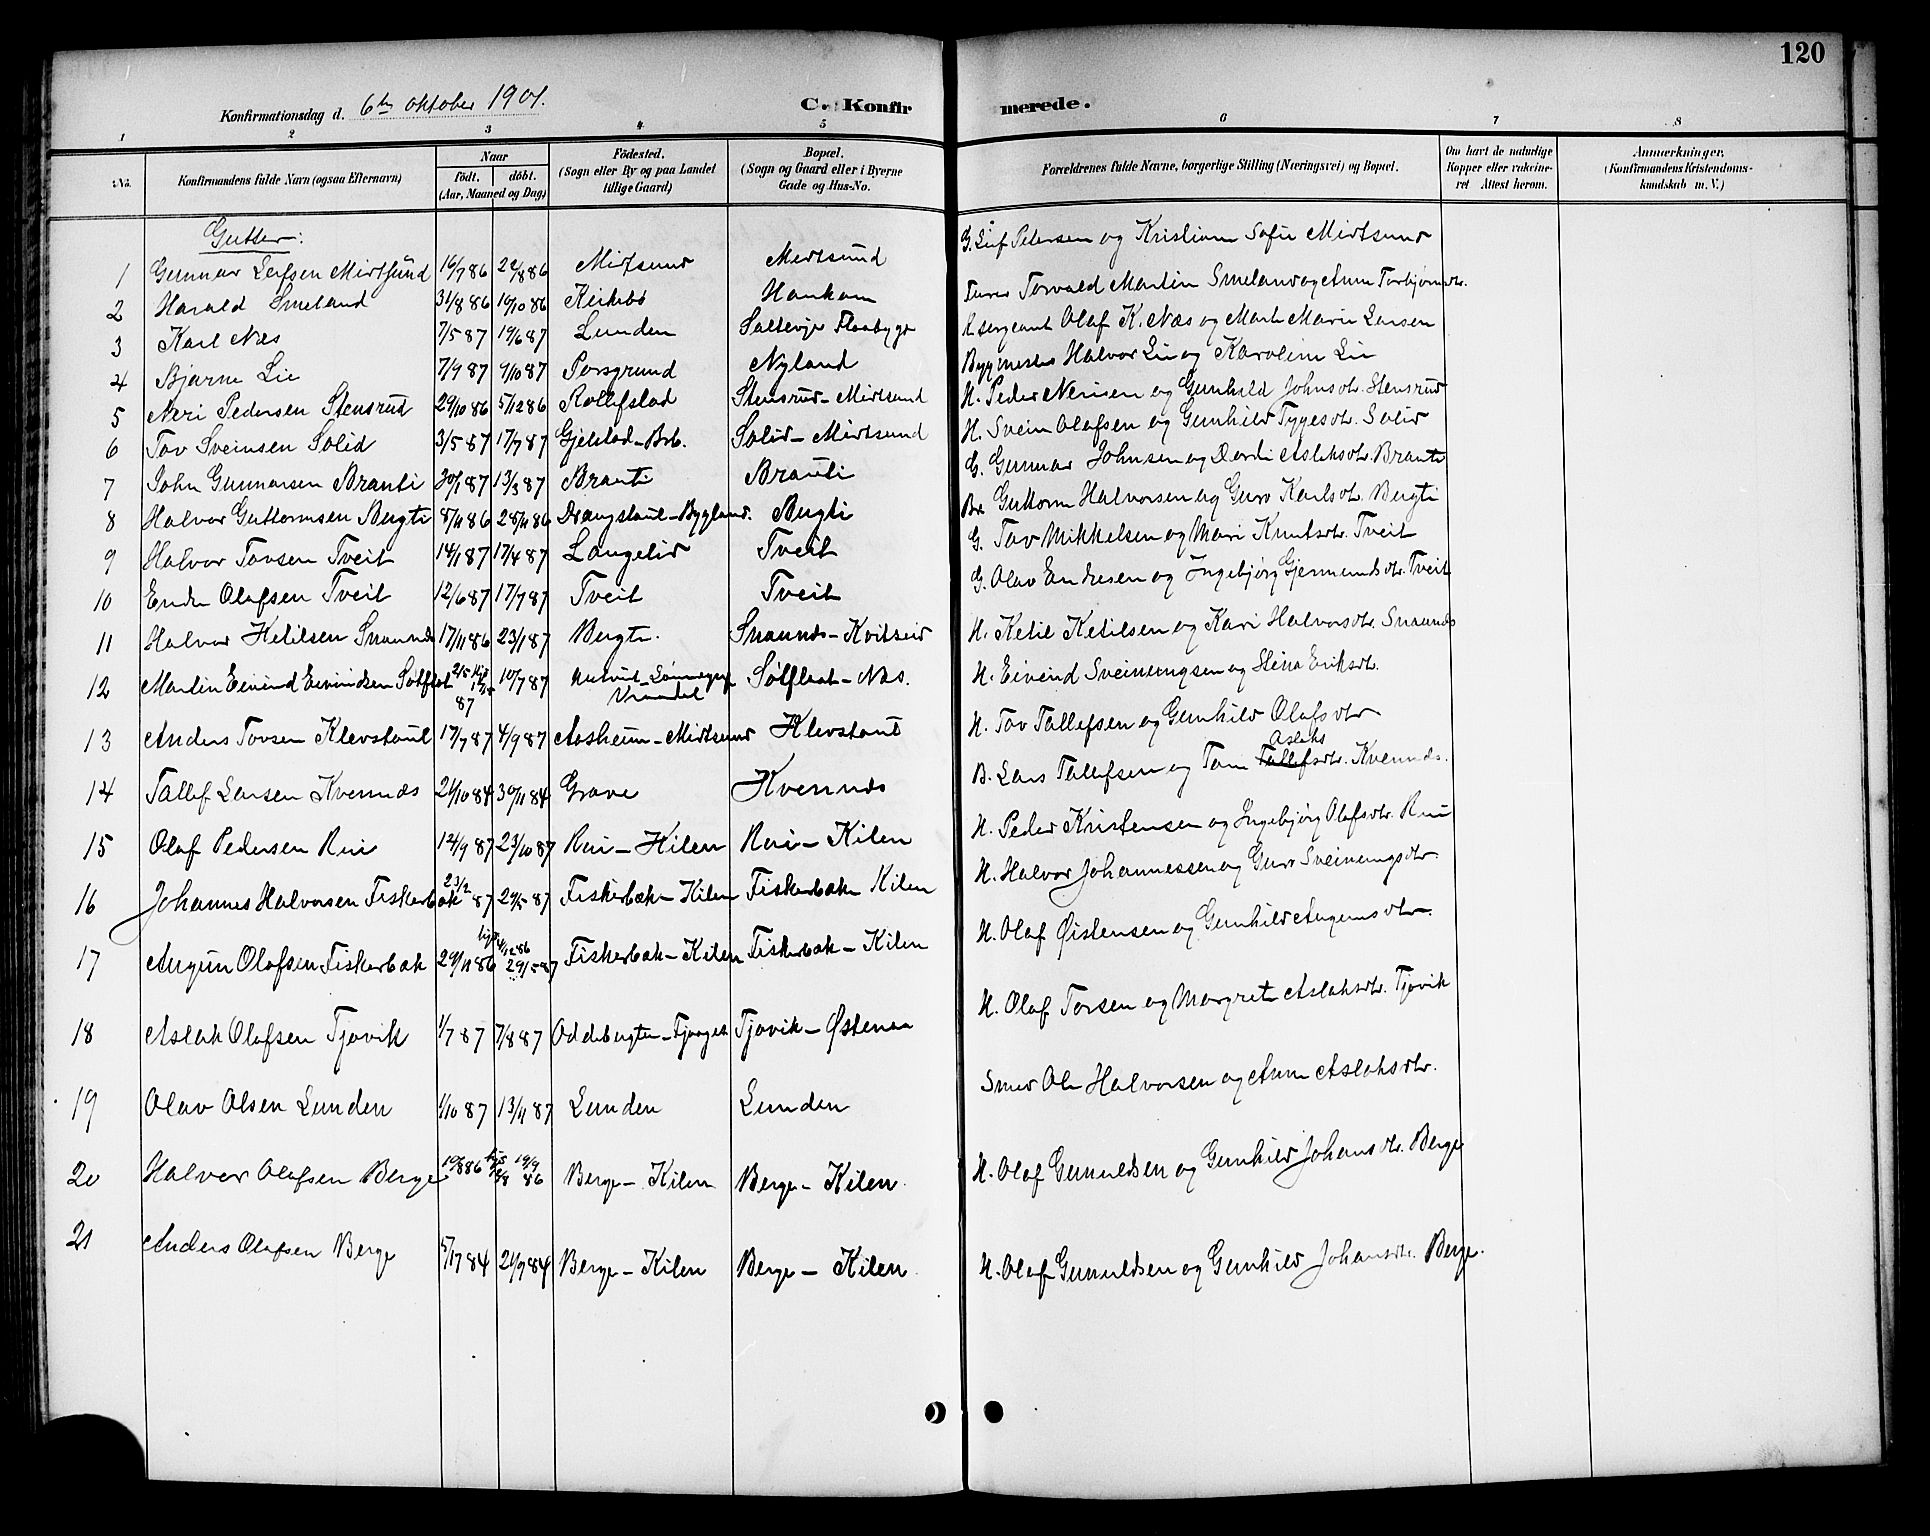 120
Konfirmationsdag d. 6te oktober 1901.
C. Konfirmerede.
1 2 3 4 5 6 7 8
No. Konfirmandens fulde Navn (ogsaa Efternavn) Naar Födt. döbt. (Aar, Maaned og Dag) Födested. (Sogn eller By og paa Landet tillige Gaard) Bopæl. (Sogn og Gaard eller i Byerne Gade og Hus-No. Forældrenes fulde Navne, borgerlige Stilling (Næringsvei) og Bopæl. Om havt de naturlige Kopper eller vakcineret Attest herom. Anmærkninger, (Konfirmandens Kristendomskundskab m. V.)
Gutter:
1 Gunnar Leifsen Mirtsund 16/7 86 22/8 86 Mirtsund Mirtsund G. Leif Petersen og Kristiane Sofie Mirtsund
2 Harald Smeland 31/8 86 10/10 86 Kirkebø Haukom Torvald Martin Smeland og Anne Torbjørnsdtr.
3 Karl Næs 7/5 87 19/6 87 Lunden Saltevje Flaabygd Sergeant Olaf K. Næs og Marte Marie Larsen
4 Bjarne Lie 7/9 87 9/10 87 Porsgrund Nyland Bygmester Halvor Lie og Karoline Lie
5 Neri Pedersen Stensrud 29/10 86 5/12 86 Rollefstad Stensrud - Mirtsund H. Peder Nerisen og Gunhild Johnsdtr. Stensrud
6 Tov Sveinsen Solid 3/5 87 17/7 87 Gjelstad - Brb. Solid - Mirtsund H. Svein Olafsen og Gunhild Tygesdtr. Solid
7 John Gunnarsen Brauti 30/1 87 13/3 87 Brauti Brauti G. Gunnar Johnsen og Dordi Aslaksdtr. Brauti
8 Halvor Guttormsen Bergti 8/11 86 28/11 86 Drangstaul - Bygland. Bergti Br. Guttorm Halvorsen og Guro Karlsdtr. Bergti
9 Halvor Tovsen Tveit 14/1 87 17/4 87 Langelid Tveit G. Tov Mikkelsen og Mari Knutsdtr. Tveit
10 Endre Olafsen Tveit 12/6 87 17/7 87 Tveit Tveit G. Olav Endresen og Ingebjørg Gjermundsdtr. Tveit
11 Halvor Ketilsen Snaunds 17/11 86 23/1 87 Bergte. Snaunds - Kvitseid H. Ketil Ketilsen og Kari Halvorsdtr. Snaunds
12 Martin Eivind Eivindsen Solflot 87 10/7 87 Vraadal Solflaat - Næs. H. Eivend Sveinungsen og Stina Eriksdtr.
13 Anders Tovsen Klevstaul 17/7 87 4/9 87 Aasheim - Mirtsund Klevstaul H. Tov Tallefsen og Gunhild Olafsdtr
14 Tallef Larsen Kvennds 21/10 84 30/11 84 Grave Kvennds B. Lars Tallefsen og Tone Tallefsdtr. Aslaks Kvennds.
15 Olaf Pedersen Rui 12/9 87 23/10 87 Rui - Kilen Rui - Kilen H. Peder Kristensen og Ingebjørg Olafsdtr. Rui
16 Johannes Halvorsen Fiskerbæk 23/2 87 29/5 87 Fiskerbæk - Kilen Fiskerbæk - Kilen H. Halvor Johannessen og Guro Sveinungsdtr.
17 Augun Olafsen Fiskerbæk 29/11 86 4/12 86 29/5 87 Fiskerbæk - Kilen Fiskerbæk - Kilen H. Olaf Øistensen og Gunhild Augunsdtr.
18 Aslak Olafsen Tjovik 1/7 87 7/8 87 Oddebergtu - Fjaagesund Tjovik - Østenaa H. Olaf Torsen og Margrete Aslaksdtr. Tjovik
19 Olav Olsen Lunden 1/10 87 13/11 87 Lunden Lunden Smed Ole Halvorsen og Anne Aslaksdtr.
20 Halvor Olafsen Berge 10/8 86 19/9 86 Berge - Kilen Berge - Kilen. H. Olaf Gunuldsen og Gunhild Johansdtr. Berge
21 Anders Olafsen Berge 5/7 84 21/9 84 Berge - Kilen Berge - Kilen H. Olaf Gunuldsen og Gunhild Johansdtr. Berge.